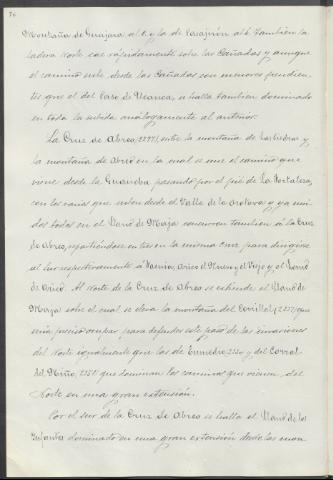 76
Montaña de Guajara al E. y la de Pasajirón al O. Tambien la
ladera Norte cae rápidamente sobre las Cañadas y aunque
el camino sube desde las Cañadas con menores pendien-
tes que el del Paso de Ucanca, se halla tambien dominado
en toda la subida análogamente al anterior.
La Cruz de Abreo, entre la montaña de las Piedras y
la montaña de Abreo en la cual se une el camino que
viene desde la Guancha, pasando por el pié de La Fortaleza,
con los varios que suben desde el Valle de la Orotava y ya uni-
dos todos en el Llano de Maja concurren tambien á la Cruz
de Abreo, repartiéndose en tres en la misma cruz para dirigirse
al Sur respectivamente á Arico el Nuevo y el Viejo y el Lomo
de Arico. Al Norte de la Cruz de Abreo se extiende el Llano de
Maja sobre el cual se eleva la montaña del Cerrillar (2357) que
seria preciso ocupar para defender este paso de las invasiones
del Norte igualmente que las de Enmedio 2320 y del Corral
del Niño, 2351 que dominan los caminos que vienen del
Norte en una gran extensión.
Por el sur de la Cruz de Abreo se halla el Llano de los
Infantes dominado en una gran extensión desde las mon